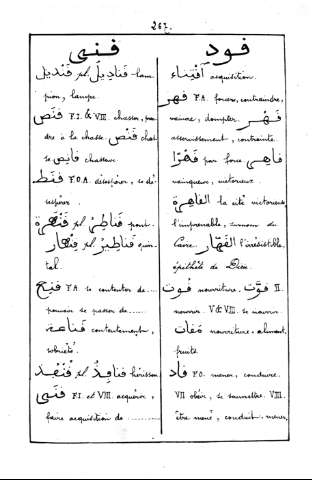 267.
قنى
قود
قنديل pl قناديل lam-
pion, lampe.
قنص F.I. & VIII chasser, pren-
dre à la chasse قنص chasse
قانص chasseur
قنط F.O.A désespérer, se dé-
sespérer.
قنطرة pl قناطر pont.
قنطار pl قناطير quin-
tal.
قنع F.A. se contenter de.....
pouvoir se passer de ......
قناعة contentement,
sobriété.
قنفد pl قنافد hérisson
قنى F.I et VIII acquérir,
faire acquisition de ..........
اقتناء acquisition.
قهر F.A. forcer, contraindre,
vaincre, dompter. قهر
asservissement, contrainte.
قهرا par force قاهر
vainqueur, victorieux.
القاهرة la cité victorieuse,
l'imprenable, surnom du
Caire. القهار l'irrésistible,
épithète de Dieu
قوت nourriture. قوت II
nourrir. V & VIII. se nourrir.
مقات nourriture, aliment,
fruits
قاد F.O. mener, conduire.
VII obéir, se soumettre. VIII.
être mené, conduit. mener,